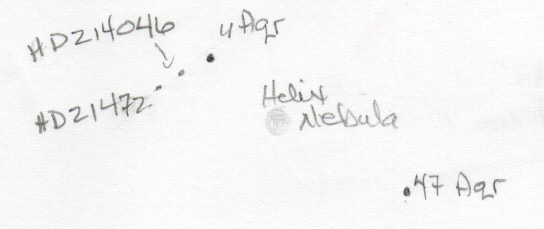 HD214046
υ Aqr
HD21472
Helix
Nebula
47 Aqr